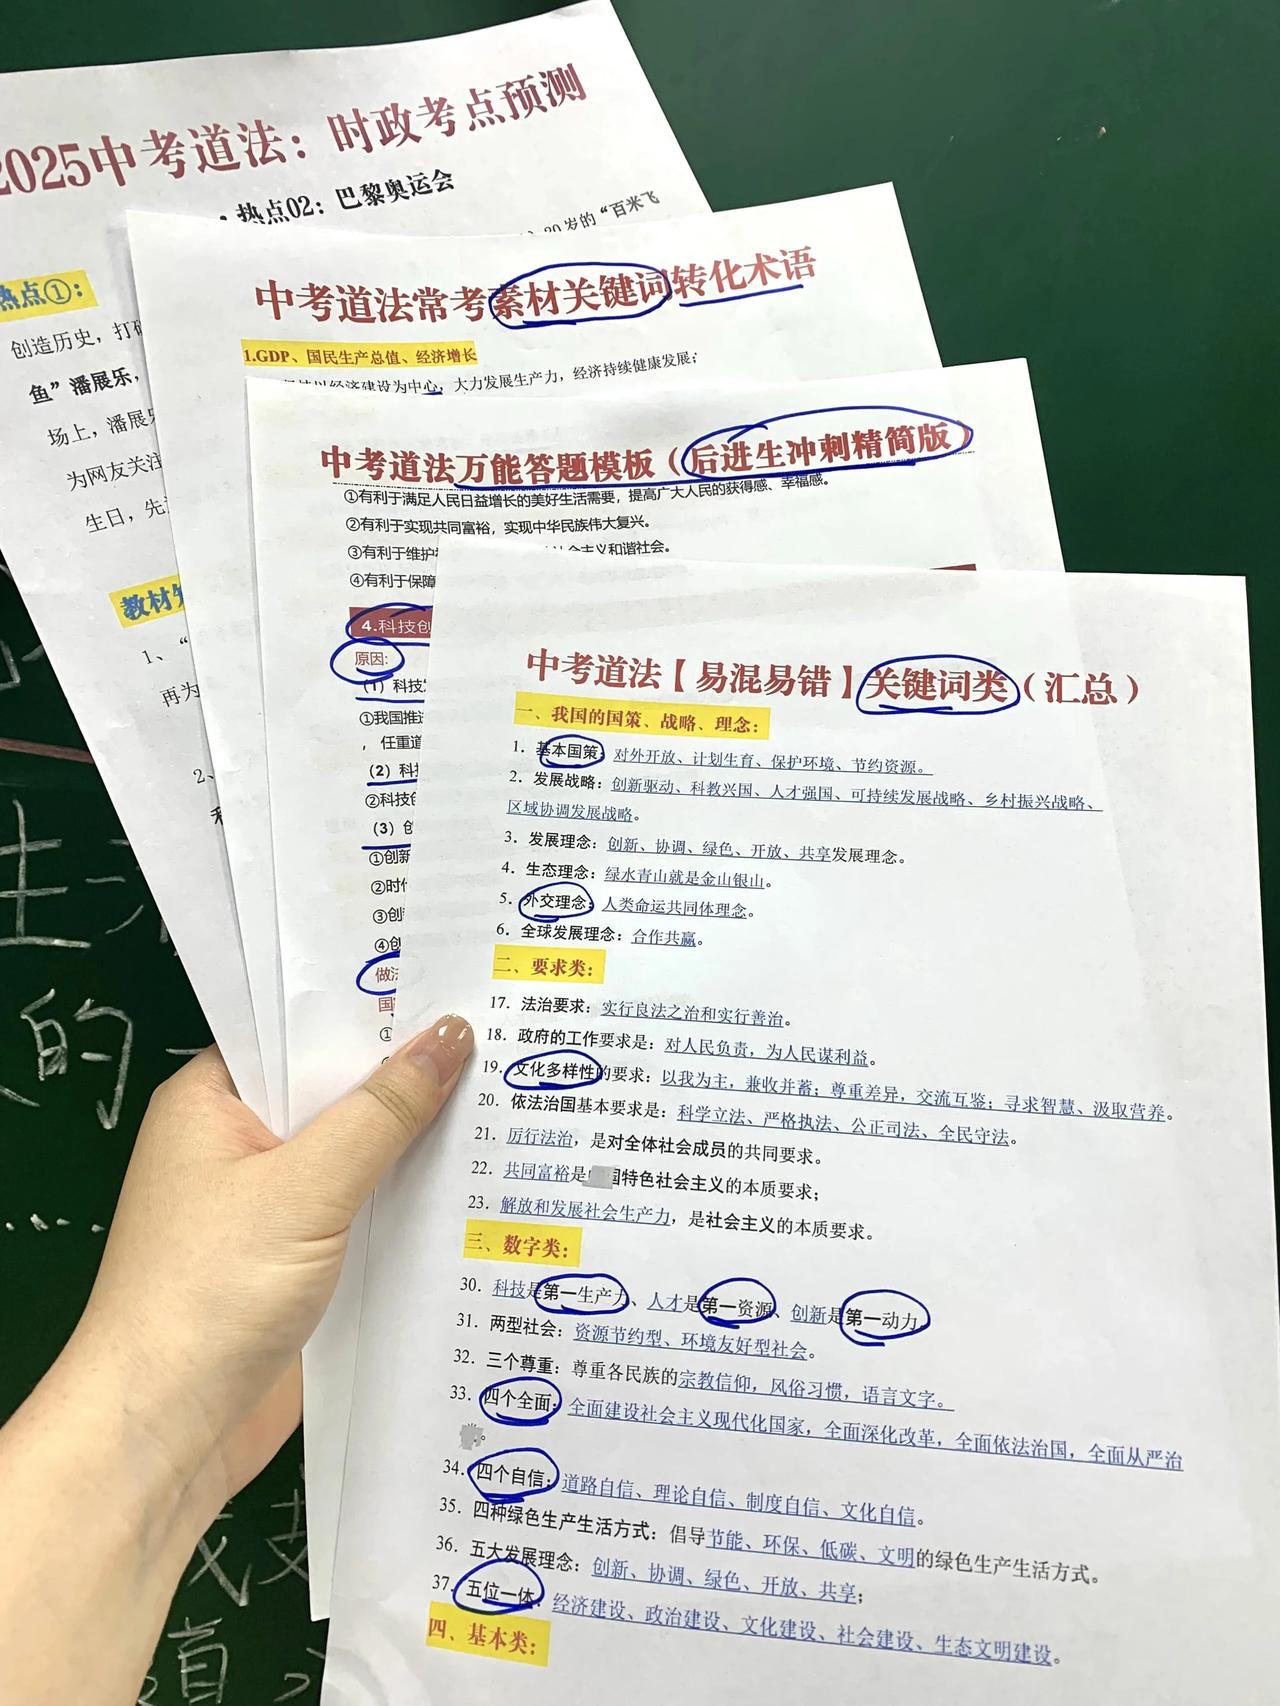 2025中考道法：时政考点预测
热点02：巴黎奥运会
20岁的“百米飞
热点①：
创造历史，打破
鱼”潘展乐，
场上，潘展乐
为网友关注
生日，先
教材知
1、“
再为
2、
中考道法常考素材关键词转化术语
1.GDP、国民生产总值、经济增长
以经济建设为中心，大力发展生产力，经济持续健康发展；
中考道法万能答题模板（后进生冲刺精简版）
①有利于满足人民日益增长的美好生活需要，提高广大人民的获得感、幸福感。
②有利于实现共同富裕，实现中华民族伟大复兴。
③有利于维护 社会主义和谐社会。
④有利于保障
4.科技创
原因：
（1）科技
①我国推进
，任重道
（2）科技
②科技创
（3）创
①创新
②时代
③创
④创
做法
国
①
中考道法【易混易错】关键词类（汇总）
一、我国的国策、战略、理念：
1．基本国策：对外开放、计划生育、保护环境、节约资源。
2．发展战略：创新驱动、科教兴国、人才强国、可持续发展战略、乡村振兴战略、
区域协调发展战略。
3．发展理念：创新、协调、绿色、开放、共享发展理念。
4．生态理念：绿水青山就是金山银山。
5．外交理念：人类命运共同体理念。
6．全球发展理念：合作共赢。
二、要求类：
17．法治要求：实行良法之治和实行善治。
18．政府的工作要求是：对人民负责，为人民谋利益。
19．文化多样性的要求：以我为主，兼收并蓄；尊重差异，交流互鉴；寻求智慧、汲取营养。
20．依法治国基本要求是：科学立法、严格执法、公正司法、全民守法。
21．厉行法治，是对全体社会成员的共同要求。
22．共同富裕是 国特色社会主义的本质要求；
23．解放和发展社会生产力，是社会主义的本质要求。
三、数字类：
30．科技是第一生产力、人才是第一资源、创新是第一动力。
31．两型社会：资源节约型、环境友好型社会。
32．三个尊重：尊重各民族的宗教信仰，风俗习惯，语言文字。
33．四个全面：全面建设社会主义现代化国家，全面深化改革，全面依法治国，全面从严治
。
34．四个自信：道路自信、理论自信、制度自信、文化自信。
35．四种绿色生产生活方式：倡导节能、环保、低碳、文明的绿色生产生活方式。
36．五大发展理念：创新、协调、绿色、开放、共享；
37．五位一体：经济建设、政治建设、文化建设、社会建设、生态文明建设。
四、基本类：
生
的
直